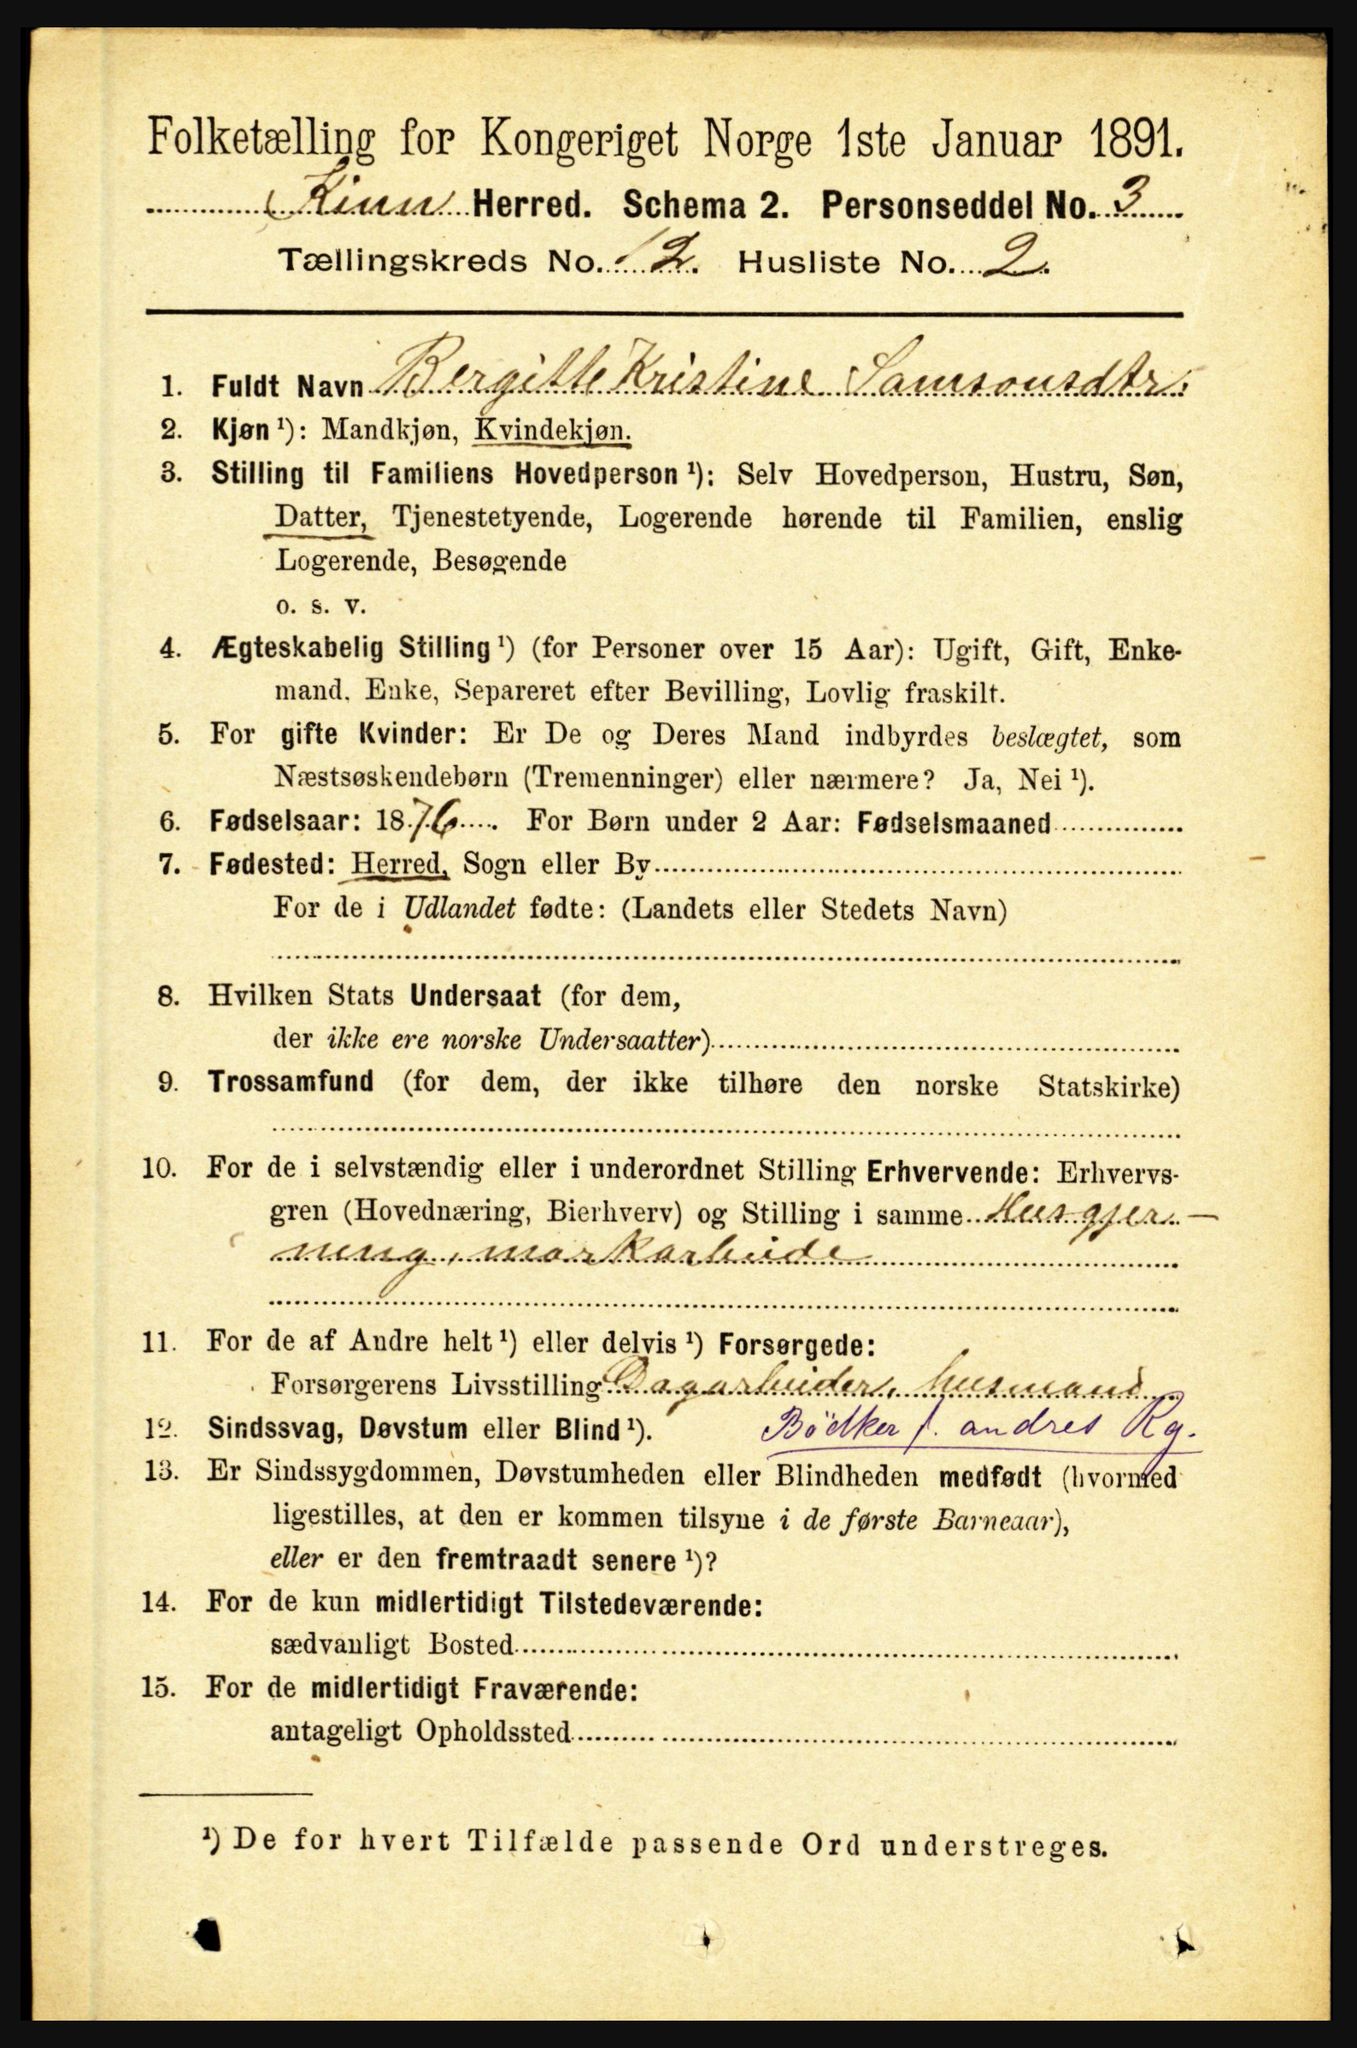 Folketælling for Kongeriget Norge 1ste Januar 1891.
Kinn Herred. Schema 2. Personseddel No. 3
Tællingskreds No. 12. Husliste No. 2.
1. Fuldt Navn Bergitte Kristine Samsonsdtr.
2. Kjøn ¹): Mandkjøn, Kvindekjøn.
3. Stilling til Familiens Hovedperson ¹): Selv Hovedperson, Hustru, Søn,
Datter, Tjenestetyende, Logerende hørende til Familien, enslig
Logerende, Besøgende
o. s. v.
4. Ægteskabelig Stilling ¹) (for Personer over 15 Aar): Ugift, Gift, Enke-
mand, Enke, Separeret efter Bevilling, Lovlig fraskilt.
5. For gifte Kvinder: Er De og Deres Mand indbyrdes beslægtet, som
Næstsøskendebørn (Tremenninger) eller nærmere? Ja, Nei ¹).
6. Fødselsaar: 1876. For Børn under 2 Aar: Fødselsmaaned
7. Fødested: Herred, Sogn eller By
For de i Udlandet fødte: (Landets eller Stedets Navn)
8. Hvilken Stats Undersaat (for dem,
der ikke ere norske Undersaatter)
9. Trossamfund (for dem, der ikke tilhøre den norske Statskirke)
10. For de i selvstændig eller i underordnet Stilling Erhvervende: Erhvervs-
gren (Hovednæring, Bierhverv) og Stilling i samme Husgjer-
ning, markarbeide
11. For de af Andre helt ¹) eller delvis ¹) Forsørgede:
Forsørgerens Livsstilling Dagarbeider, husmand
12. Sindssvag, Døvstum eller Blind ¹). Bødker f. andres Rg.
13. Er Sindssygdommen, Døvstumheden eller Blindheden medfødt (hvormed
ligestilles, at den er kommen tilsyne i de første Barneaar),
eller er den fremtraadt senere ¹)?
14. For de kun midlertidigt Tilstedeværende:
sædvanligt Bosted
15. For de midlertidigt Fraværende:
antageligt Opholdssted
¹) De for hvert Tilfælde passende Ord understreges.